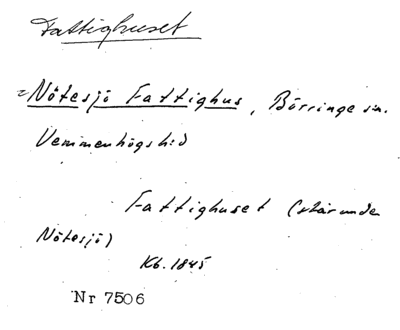 Fattighuset
= Nötesjö Fattighus, Börringe sn.
Vemmenhögs hd
Fattighuset (står under
Nötesjö)
Kb. 1845
Nr 7506